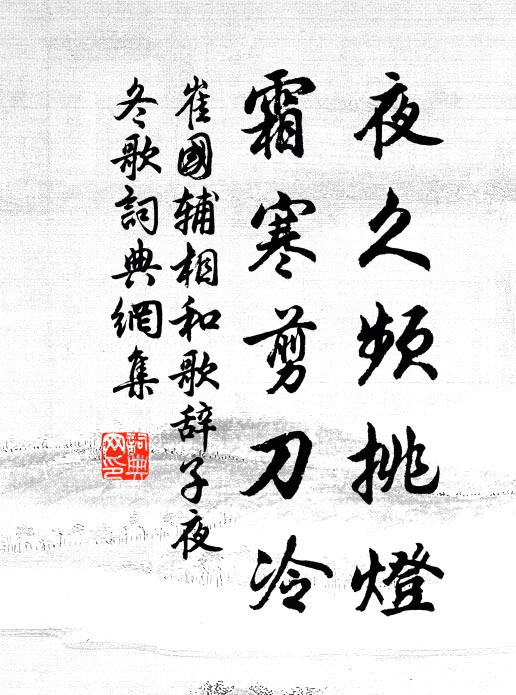 夜久頻挑燈
霜寒剪刀冷
崔國輔相和歌辞子夜
冬歌詞典網集
詞典
网印